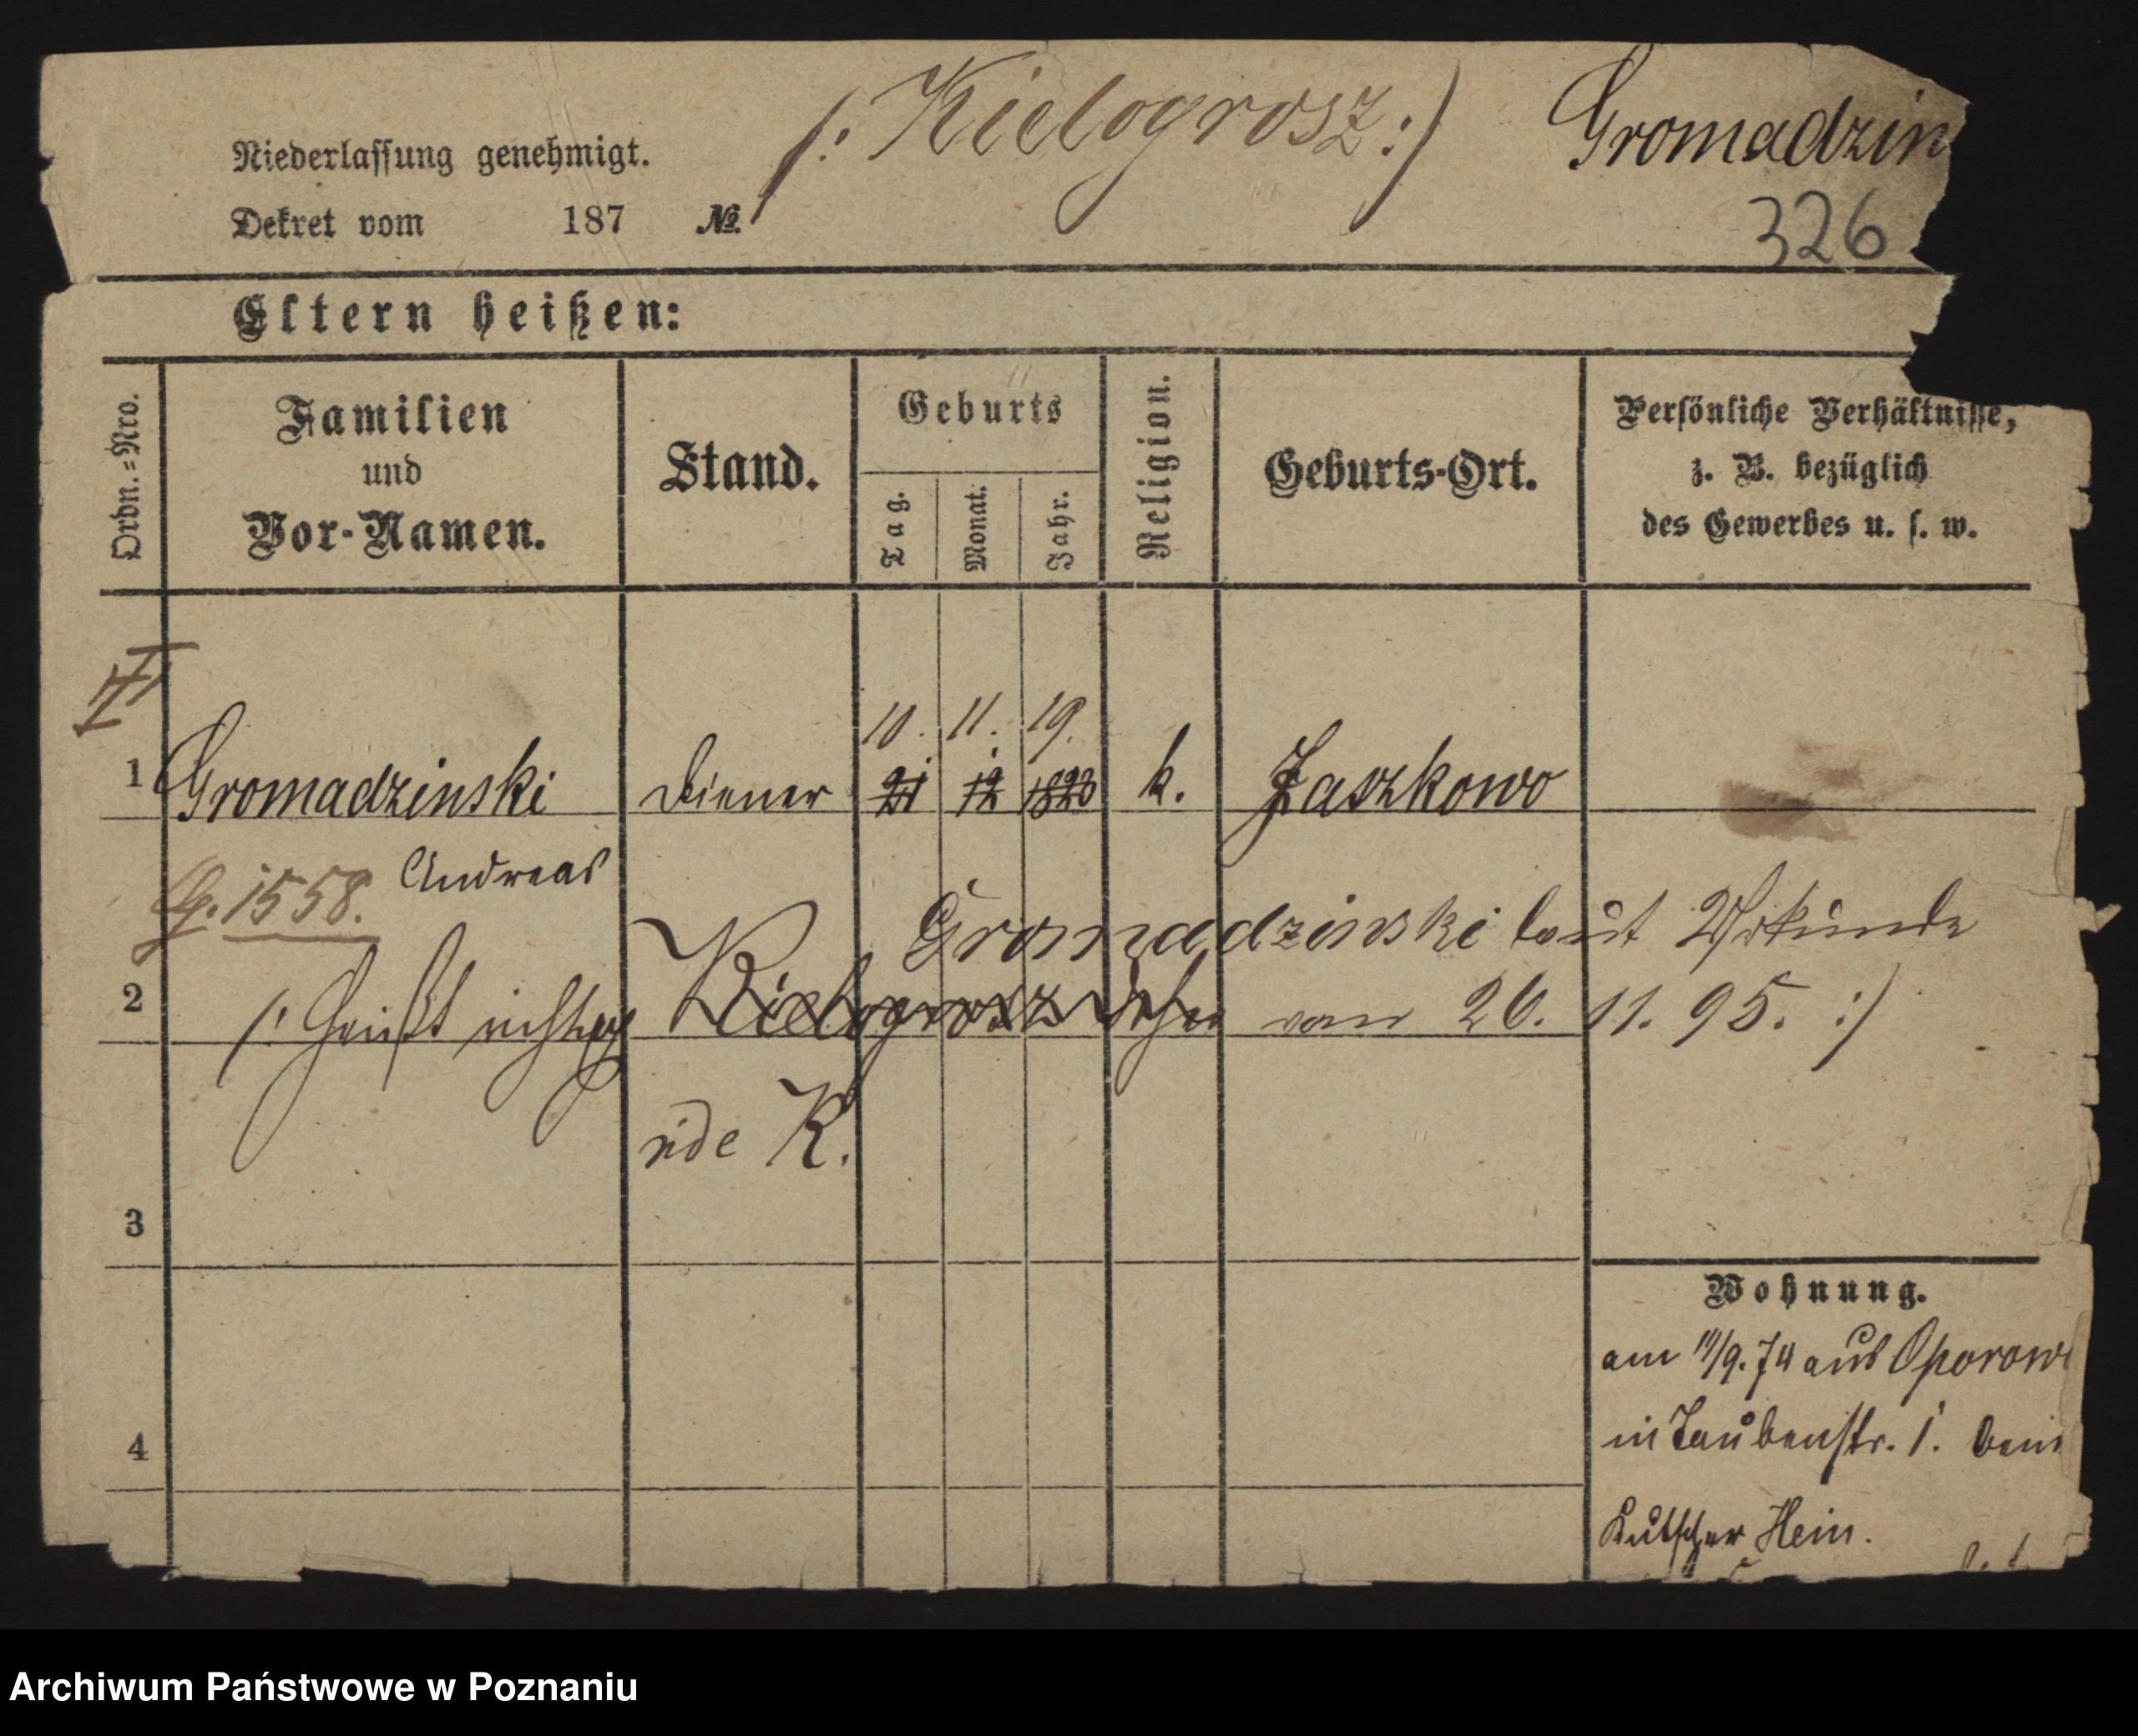 /: Kielogrosz :/ Gromadzin
Niederlassung genehmigt.
Dekret vom 187 №
326
Eltern heißen:
Ordn.=Nro.
Familien
und
Vor-Namen.
Stand.
Geburts
Tag.
Monat.
Jahr.
Religion.
Geburts-Ort.
Persönliche Verhältnisse,
z. B. bezüglich
des Gewerbes u. s. w.
II
10. 11. 19.
1 Gromadzinski Diener 21 12 1823 k. Jaszkowo
Andreas
1558.
Gromadzinski laut Urkunde
2 /: heißt richtig Kielogrosz vom 26. 11. 95. :/
vide K.
3
Wohnung.
am 11/9. 74 aus Oporow
in Taubenstr. 1. beim
4
Kutscher Hein.
Archiwum Państwowe w Poznaniu